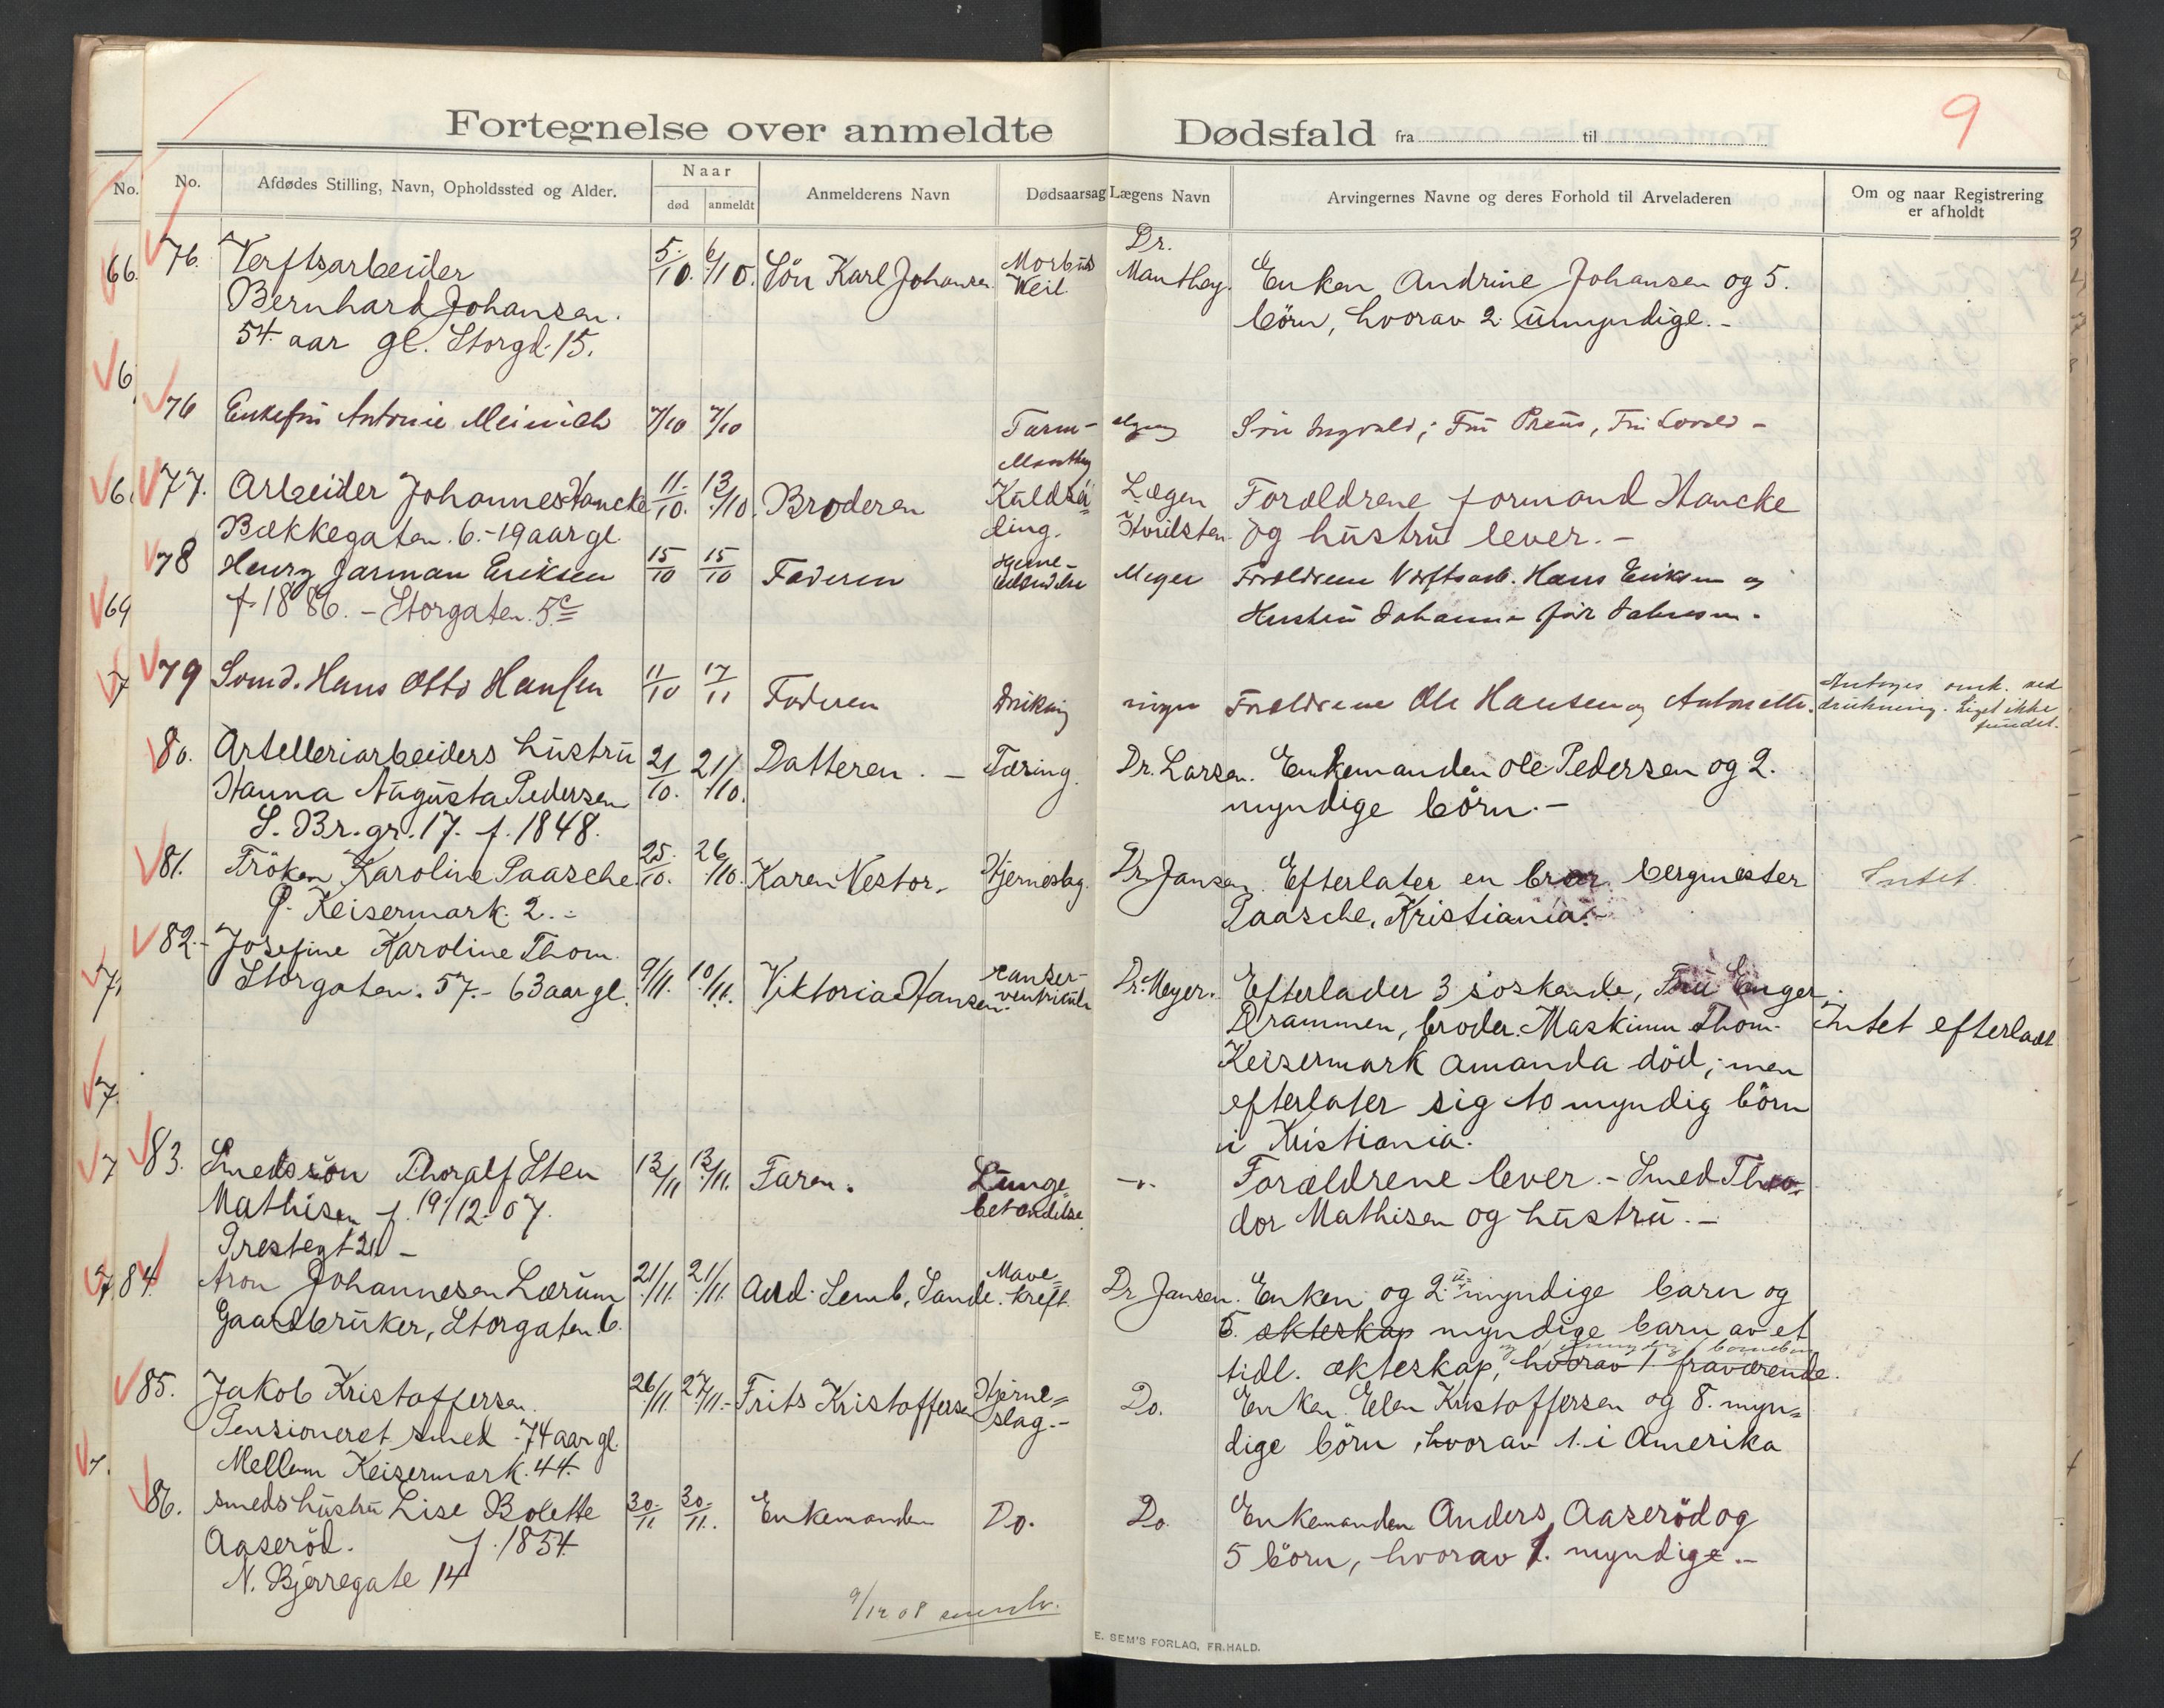 Fortegnelse over anmeldte Dødsfald fra til
9
No.
No.
Afdødes Stilling, Navn, Opholdssted og Alder.
Naar
død
anmeldt
Anmelderens Navn
Dødsaarsag
Lægens Navn
Arvingernes Navne og deres Forhold til Arveladeren
Om og naar Registrering
er afholdt
66.
76. Verftsarbeider
Bernhard Johansen.
54 aar gl. Storgd. 15.
5/10. 6/10. Sön Karl Johansen.
Morbus
Weil
Dr.
Manthey.
Enken Andrine Johansen og 5.
börn, hvorav 2 umyndige.-
6
76 Enkefru Antonie Meinich 7/10 7/10
Tarm-
Sön Ingvald; Fru Preus, Fru
Manthey
6
77. Arbeider Johannes Hancke
Bækkegaten. 6. - 19 aar gl.
11/10. 13/10. Broderen
Lægen
i
Hvilsten
Forældrene formand Hancke
og hustru lever.-
78 Henry Jarman Eriksen
f. 1886. - Storgaten. 5c
15/10 15/10 Faderen
Hjerne-
Meyer
Forældrene Verftsarb. Hans Eriksen og
Hustru Johanne
69
7
79 Sömd. Hans Otto Hansen 11/10 17/11 Faderen
ingen
Forældrene Ole Hansen og
Antages omk. ved
drukning. Liget ikke
fundet.
80. Artelleriarbeiders hustru
Hanna Augusta Pedersen
S. Br. gr. 17. f. 1848.
21/10. 21/10. Datteren. - Tæring. Dr. Larsen.
Enkemanden Ole Pedersen og 2.
myndige börn.-
81. Fröken Karoline Paasche
Ö. Keisermark. 2.-
25/10. 26/10. Karen Nestor. Hjerneslag. Dr. Jansen.
Efterlater en bror. bergmester
Paasche, Kristiania.
Intet
82.- Josefine Karoline Thom.
Storgaten. 57.- 63 aar gl.
9/11. 10/11. Viktoria Hansen.
canser-
ventriculi
Dr. Meyer.
Efterlader 3 söskende, Fru Enger.
Drammen, broder. Maskinm Thom.
Keisermark Amanda död; men
efterlater sig to myndig börn
i Kristiania.
Intet efterladt
7
7
7
83. Smedssön Thoralf Sten
Mathisen f. 19/12-07.
Prestegt 21 -
13/11 13/11. Faren.
Lunge
betændelse.
-"-
Forældrene lever.- Smed Theo-
dor Mathisen og hustru.-
7
84 Aron Johannesen Lærum
Gaardbruker, Storgaten. 6.
21/11. 21/11. And. Semb, Sande.
Mave-
kreft.
Dr Jansen.
Enken og 2 umyndige barn og
5. ækteskap myndige barn av et
tidl. ækteskap, hvorav 1 fraværende.
85. Jakob Kristoffersen.
Pensioneret smed - 74 aar gl.
Mellem Keisermark. 44.
26/11. 27/11.- Frits Kristoffersen
Hjerne-
slag.-
Do.
Enken Elen Kristoffersen og 8. myn-
dige börn, hvorav 1. i Amerika
7.
86. smedshustru Lise Bolette
Aaseröd. f. 1854.
N. Bjerregate 14
30/11 30/11. Enkemanden Do. Do.
Enkemanden Anders Aaseröd og
5 börn, hvorav 1. myndige.-
9/12 08
E. SEM'S FORLAG, FR.HALD.